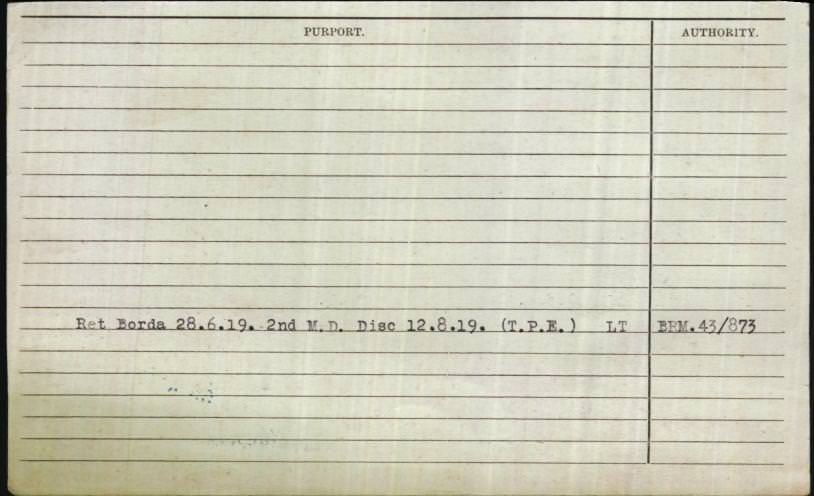 PURPORT. AUTHORITY.
Ret Borda 28.6.19. 2nd M.D. Disc 12.8.19. (T.P.E.) LT BRM.43/873